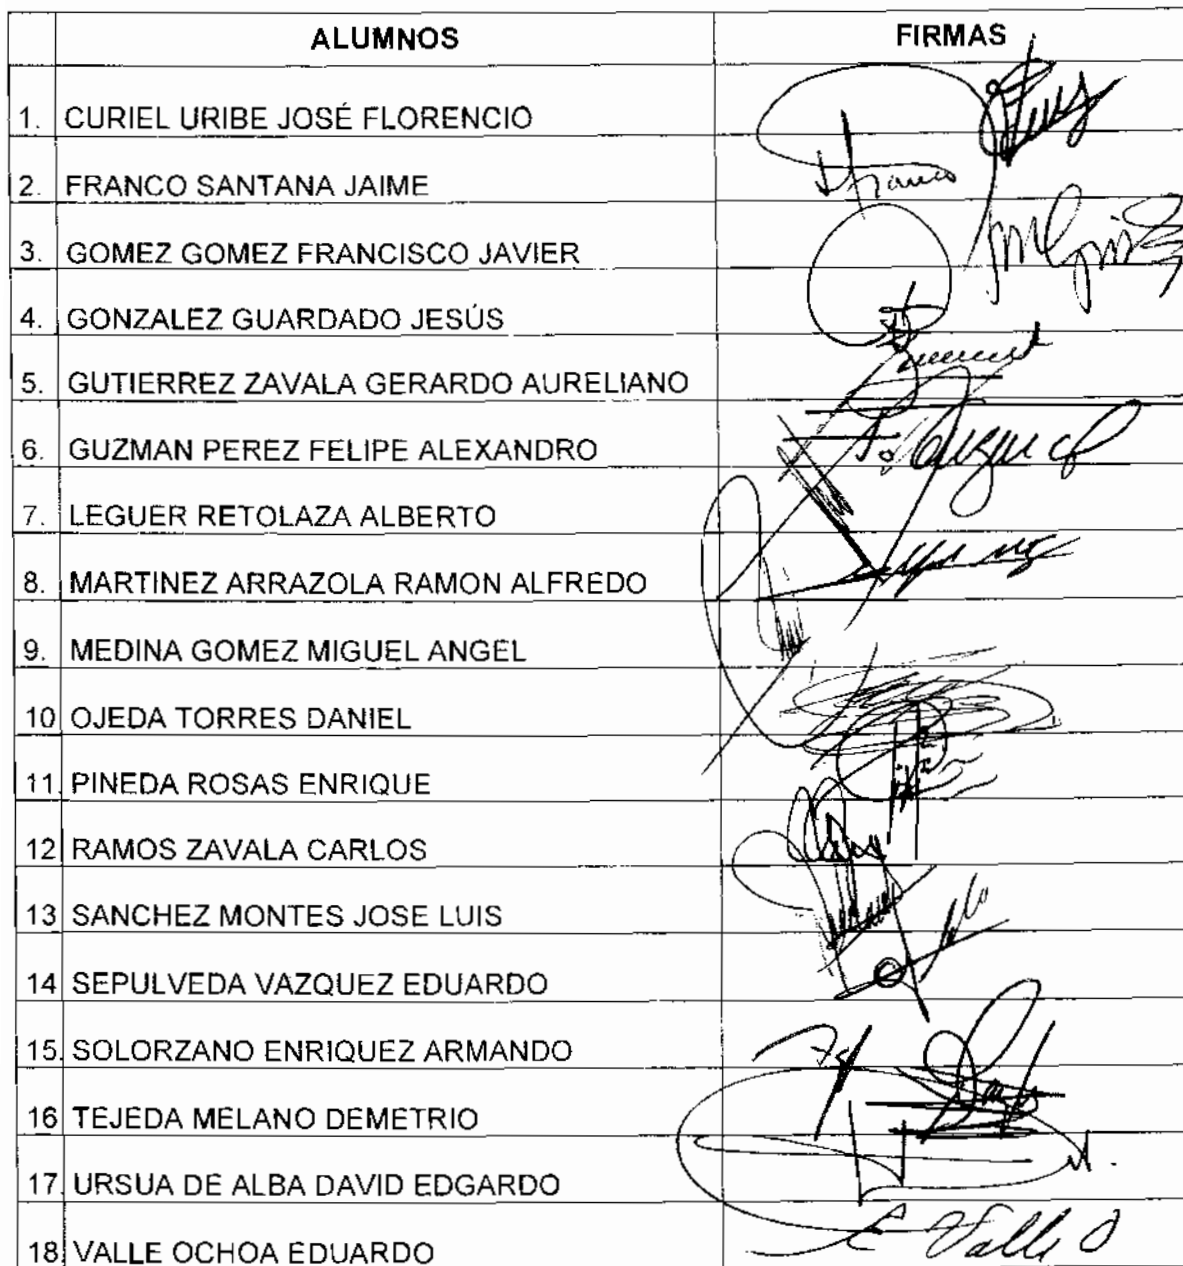 ALUMNOS FIRMAS
1. CURIEL URIBE JOSÉ FLORENCIO
2. FRANCO SANTANA JAIME Franco
3. GOMEZ GOMEZ FRANCISCO JAVIER
4. GONZALEZ GUARDADO JESÚS
5. GUTIERREZ ZAVALA GERARDO AURELIANO
6. GUZMAN PEREZ FELIPE ALEXANDRO
7. LEGUER RETOLAZA ALBERTO
8. MARTINEZ ARRAZOLA RAMON ALFREDO
9. MEDINA GOMEZ MIGUEL ANGEL
10 OJEDA TORRES DANIEL
11. PINEDA ROSAS ENRIQUE
12 RAMOS ZAVALA CARLOS
13 SANCHEZ MONTES JOSE LUIS
14 SEPULVEDA VAZQUEZ EDUARDO
15. SOLORZANO ENRIQUEZ ARMANDO
16 TEJEDA MELANO DEMETRIO
17. URSUA DE ALBA DAVID EDGARDO
18 VALLE OCHOA EDUARDO E Valle O